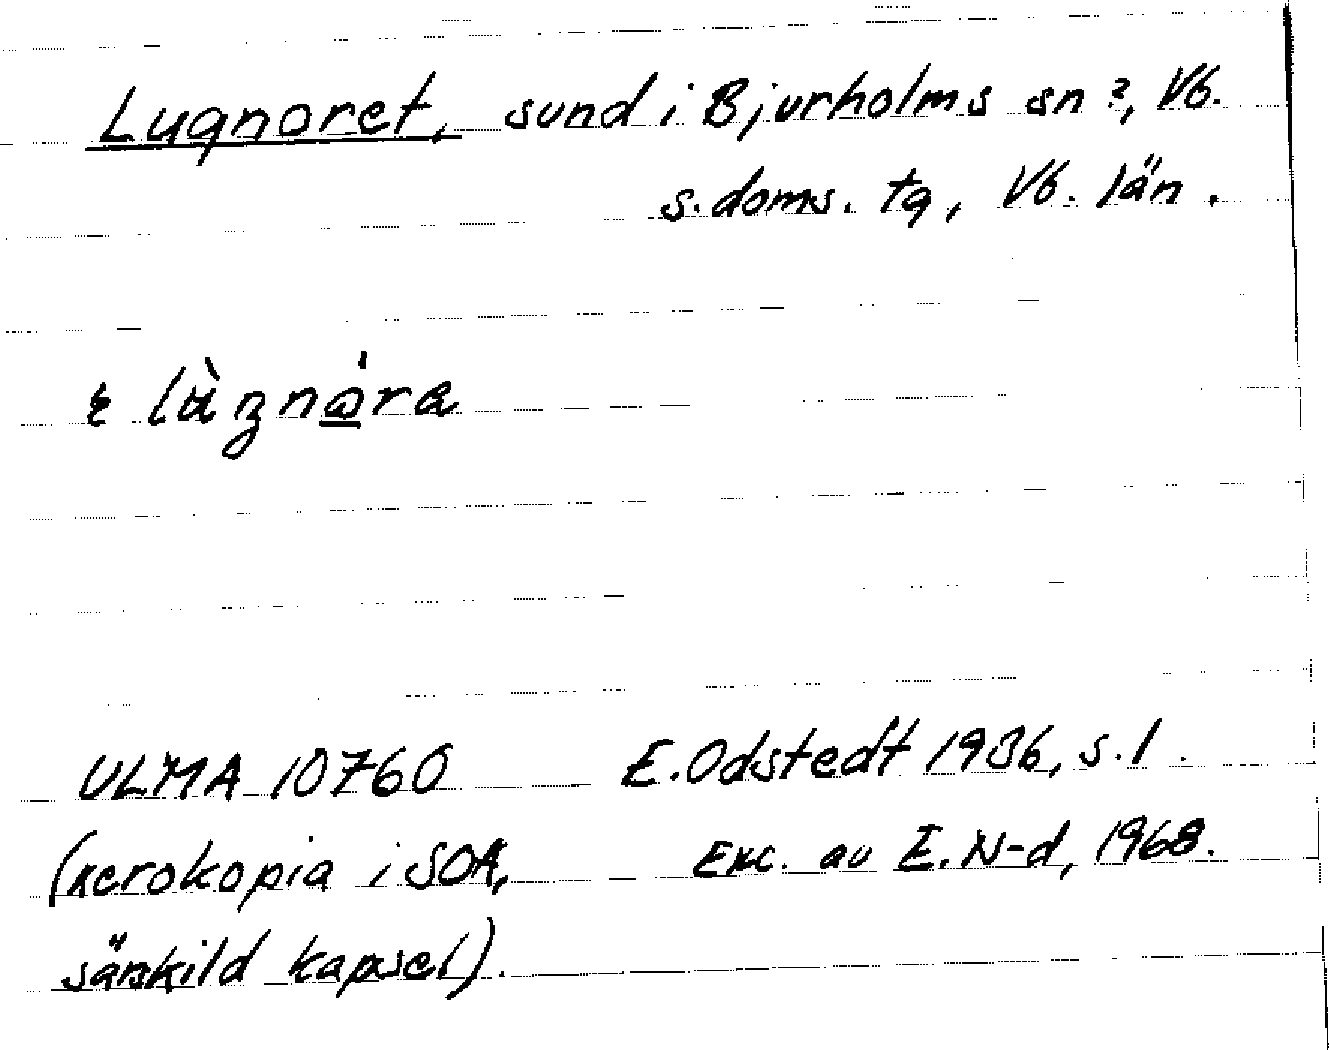 Lugnoret, sund i Bjurholms sn?, Vb.
s. doms. tg, Vb. län.
ULMA 10760 E. Odstedt 1936, s. 1.
(xerokopia i SOA, Exc. av E. N-d, 1968.
särskild kapsel).